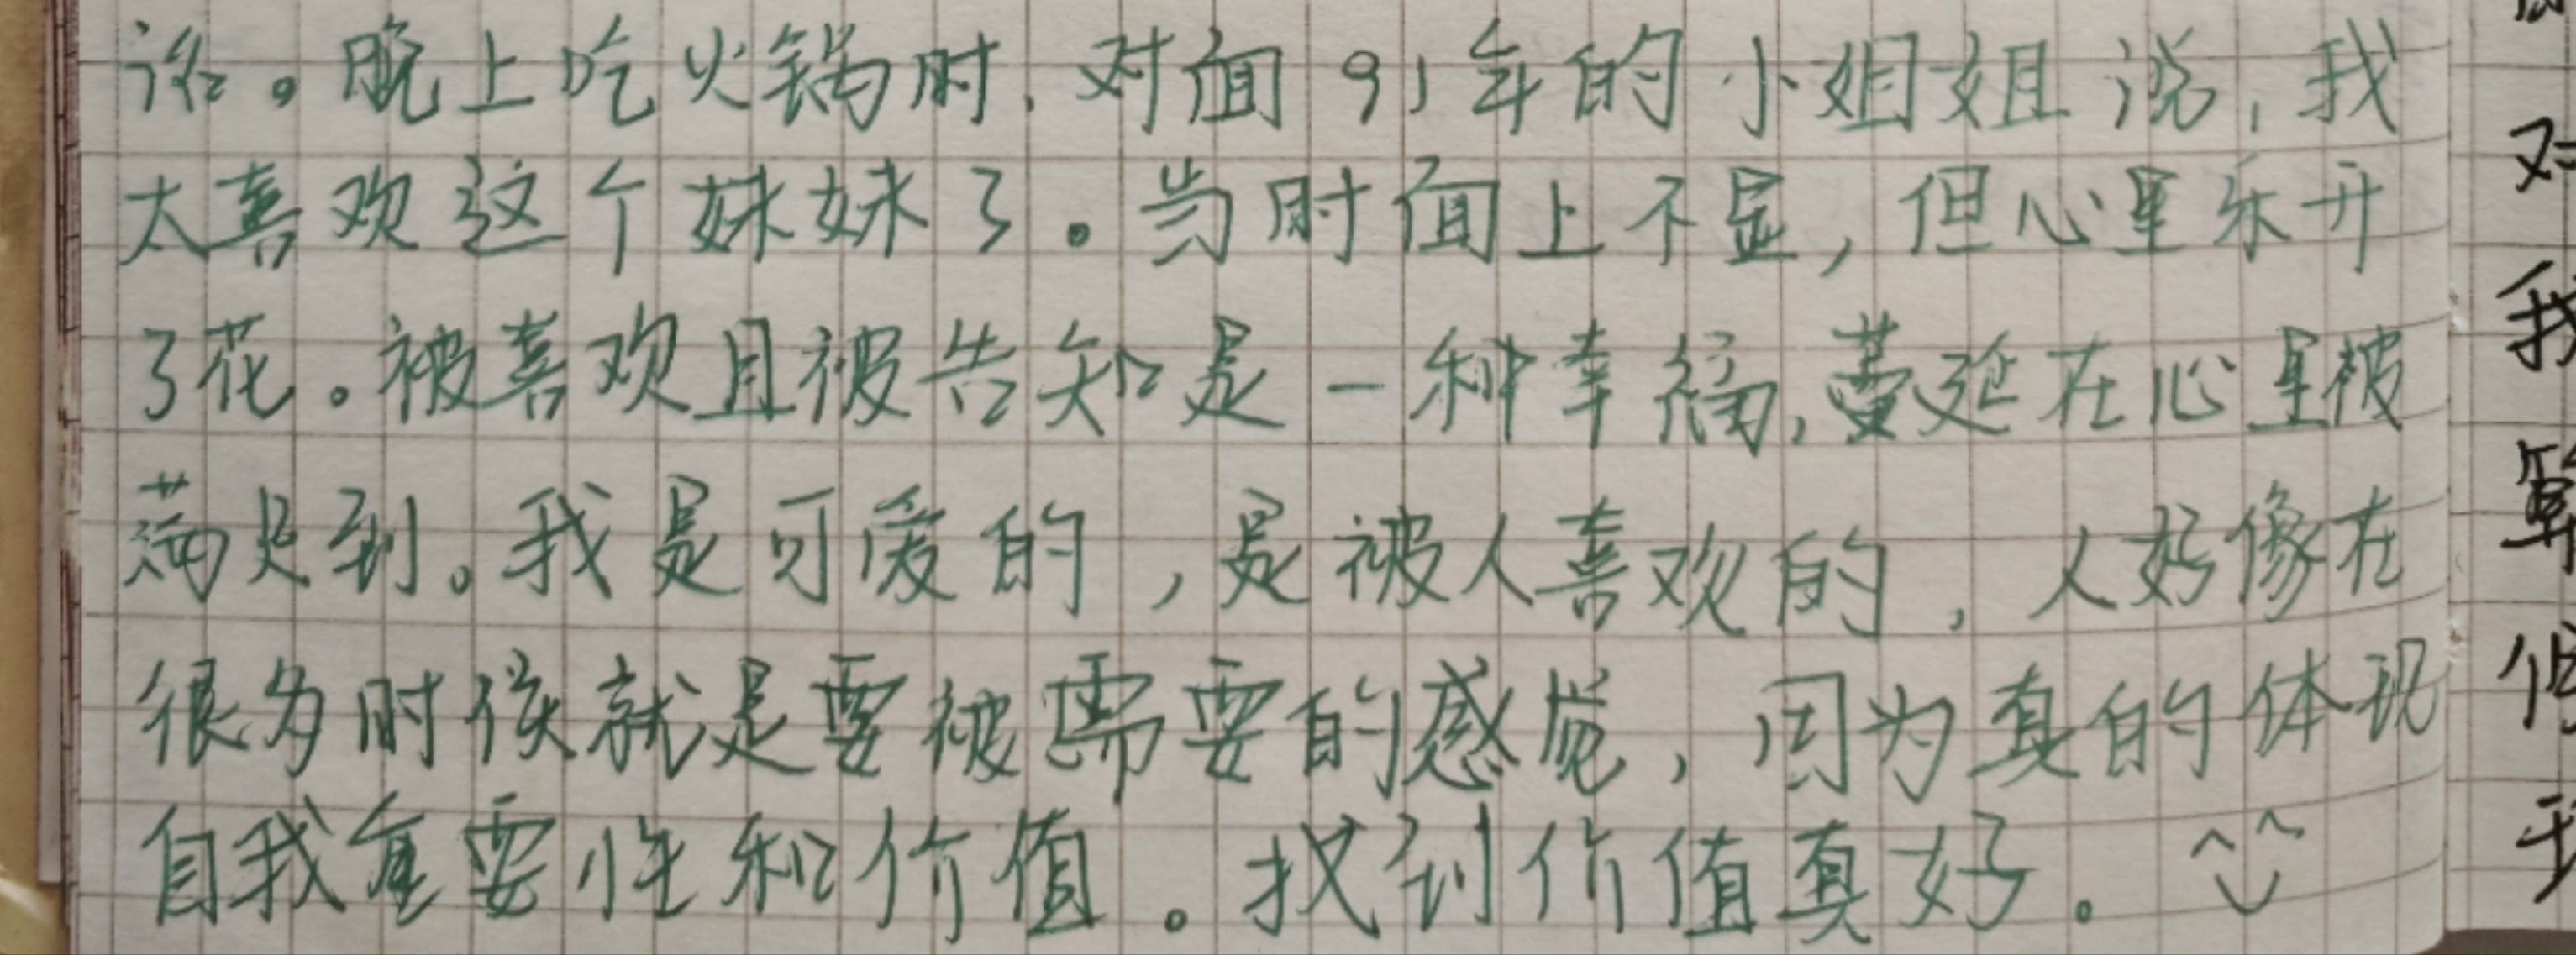 。晚上吃火锅时,对面91年的小姐姐说,我
太喜欢这个妹妹了。当时面上不显,但心里乐开
了花。被喜欢且被告知是一种幸福,蔓延在心里被
满足到。我是可爱的,是被人喜欢的,人好像在
很多时候就是要被需要的感觉,因为真的体现
自我重要性和价值。找到价值真好。
对
我
算